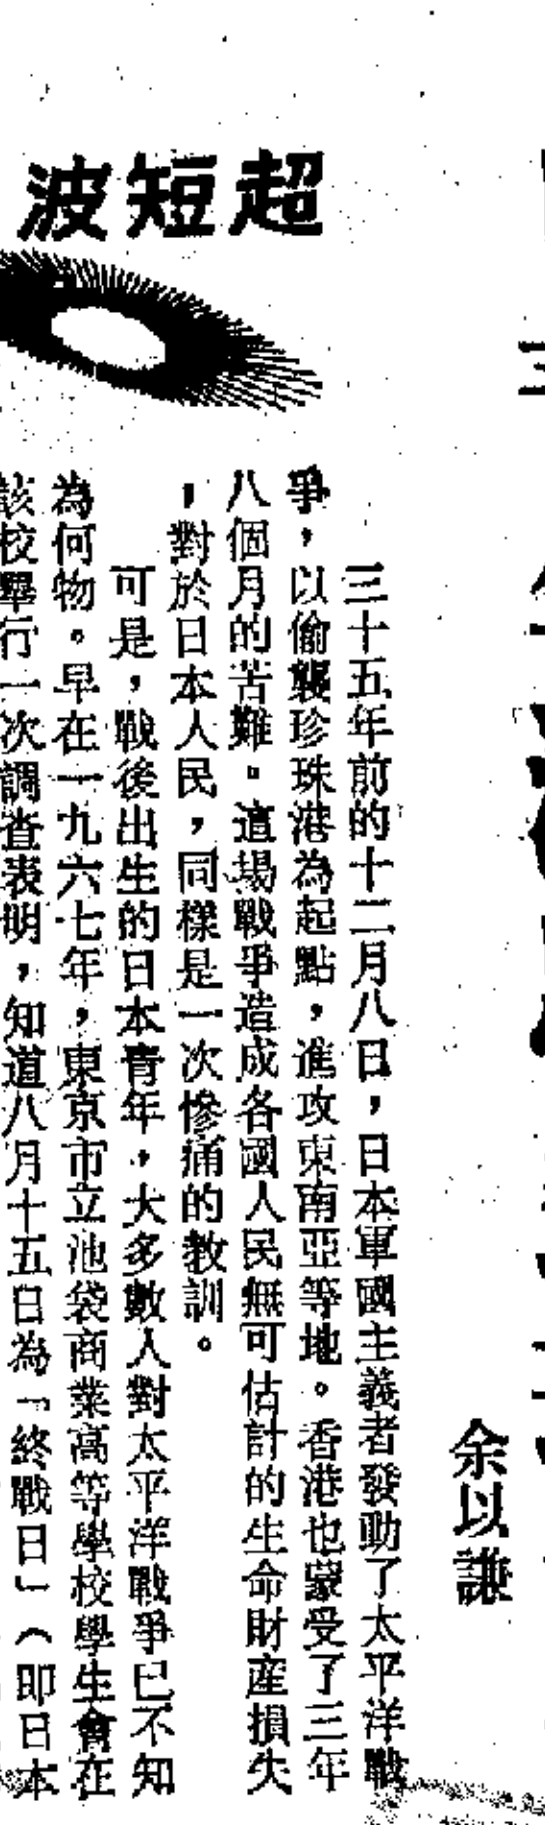 超短波
余以謙
三十五年前的十二月八日，日本軍國主義者發動了太平洋戰
爭，以偷襲珍珠港為起點，進攻東南亞等地。香港也蒙受了三年
八個月的苦難。這場戰爭造成各國人民無可估計的生命財産損失
，對於日本人民，同樣是一次慘痛的教訓。
可是，戰後出生的日本青年，大多數人對太平洋戰爭已不知
為何物。早在一九六七年，東京市立池袋商業高等學校學生會在
該校舉行一次調查表明，知道八月十五日為「終戰日」（即日本